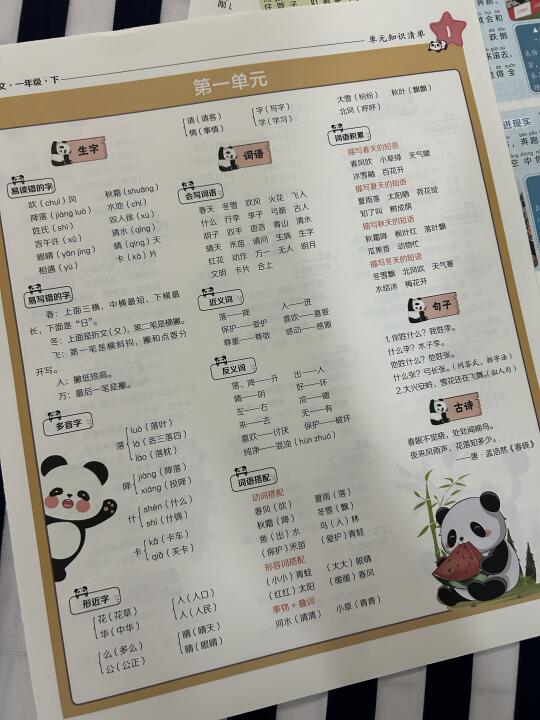 文·一年级·下
单元知识清单
1
第一单元
生字
易读错的字
吹（chuī）风 秋霜（shuāng）
降落（jiàng luò） 水池（chí）
姓氏（shì） 双人徐（xú）
言午许（xǔ） 清水（qīng）
眼睛（yǎn jing） 晴（qíng）天
相遇（yù） 卡（kǎ）片
易写错的字
春：上面三横，中横最短，下横最
长，下面是“日”。
冬：上面是折文（夂），第二笔是横撇。
飞：第一笔是横斜钩，撇和点要分
开写。
人：撇低捺高。
万：最后一笔是撇。
多音字
落 luò（落叶）
là（丢三落四）
lào（落枕）
降 jiàng（降落）
xiáng（投降）
什 shén（什么）
shí（什锦）
卡 kǎ（卡车）
qiǎ（关卡）
形近字
花（花草）
华（中华）
么（多么）
公（公正）
人（人口）
人（人民）
晴（晴天）
睛（眼睛）
请（请客）
情（事情）
字（写字）
学（学习）
词语
会写词语
春天 冬雪 吹风 火花 飞人
什么 行李 李子 弓箭 古人
胡子 双手 语言 青山 清水
晴天 禾苗 请问 生病 生字
红花 动作 万一 无人 明月
文明 卡片 合上
近义词
落——降 人——进
保护——爱护 喜欢——喜爱
尊重——尊敬 感动——感激
反义词
落、降——升 出——入
晴——阴 好——坏
左——右 凉——暖
来——去 无——有
喜欢——讨厌 保护——破坏
纯净——混浊（hùn zhuó）
词语搭配
动词搭配
春风（吹） 夏雨（落）
秋霜（降） 冬雪（飘）
鱼（出）水 鸟（入）林
（保护）禾苗 （爱护）青蛙
形容词搭配
（小小）青蛙 （大大）眼睛
（红红）太阳 （暖暖）春风
事物＋叠词
河水（清清） 小草（青青）
大雪（纷纷） 秋叶（飘飘）
北风（呼呼）
词语积累
描写春天的短语
春风吹 小草绿 天气暖
冰雪融 百花开
描写夏天的短语
夏雨落 太阳晒 荷花绽
知了叫 树成荫
描写秋天的短语
秋霜降 枫叶红 落叶飘
瓜果香 动物忙
描写冬天的短语
冬雪飘 北风吹 天气寒
水结冰 梅花开
句子
1.你姓什么？我姓李。
什么李？木子李。
他姓什么？他姓张。
什么张？弓长张。（问答式、拆字法）
2.大兴安岭，雪花还在飞舞。（拟人句）
古诗
春眠不觉晓，处处闻啼鸟。
夜来风雨声，花落知多少。
——唐·孟浩然《春晓》